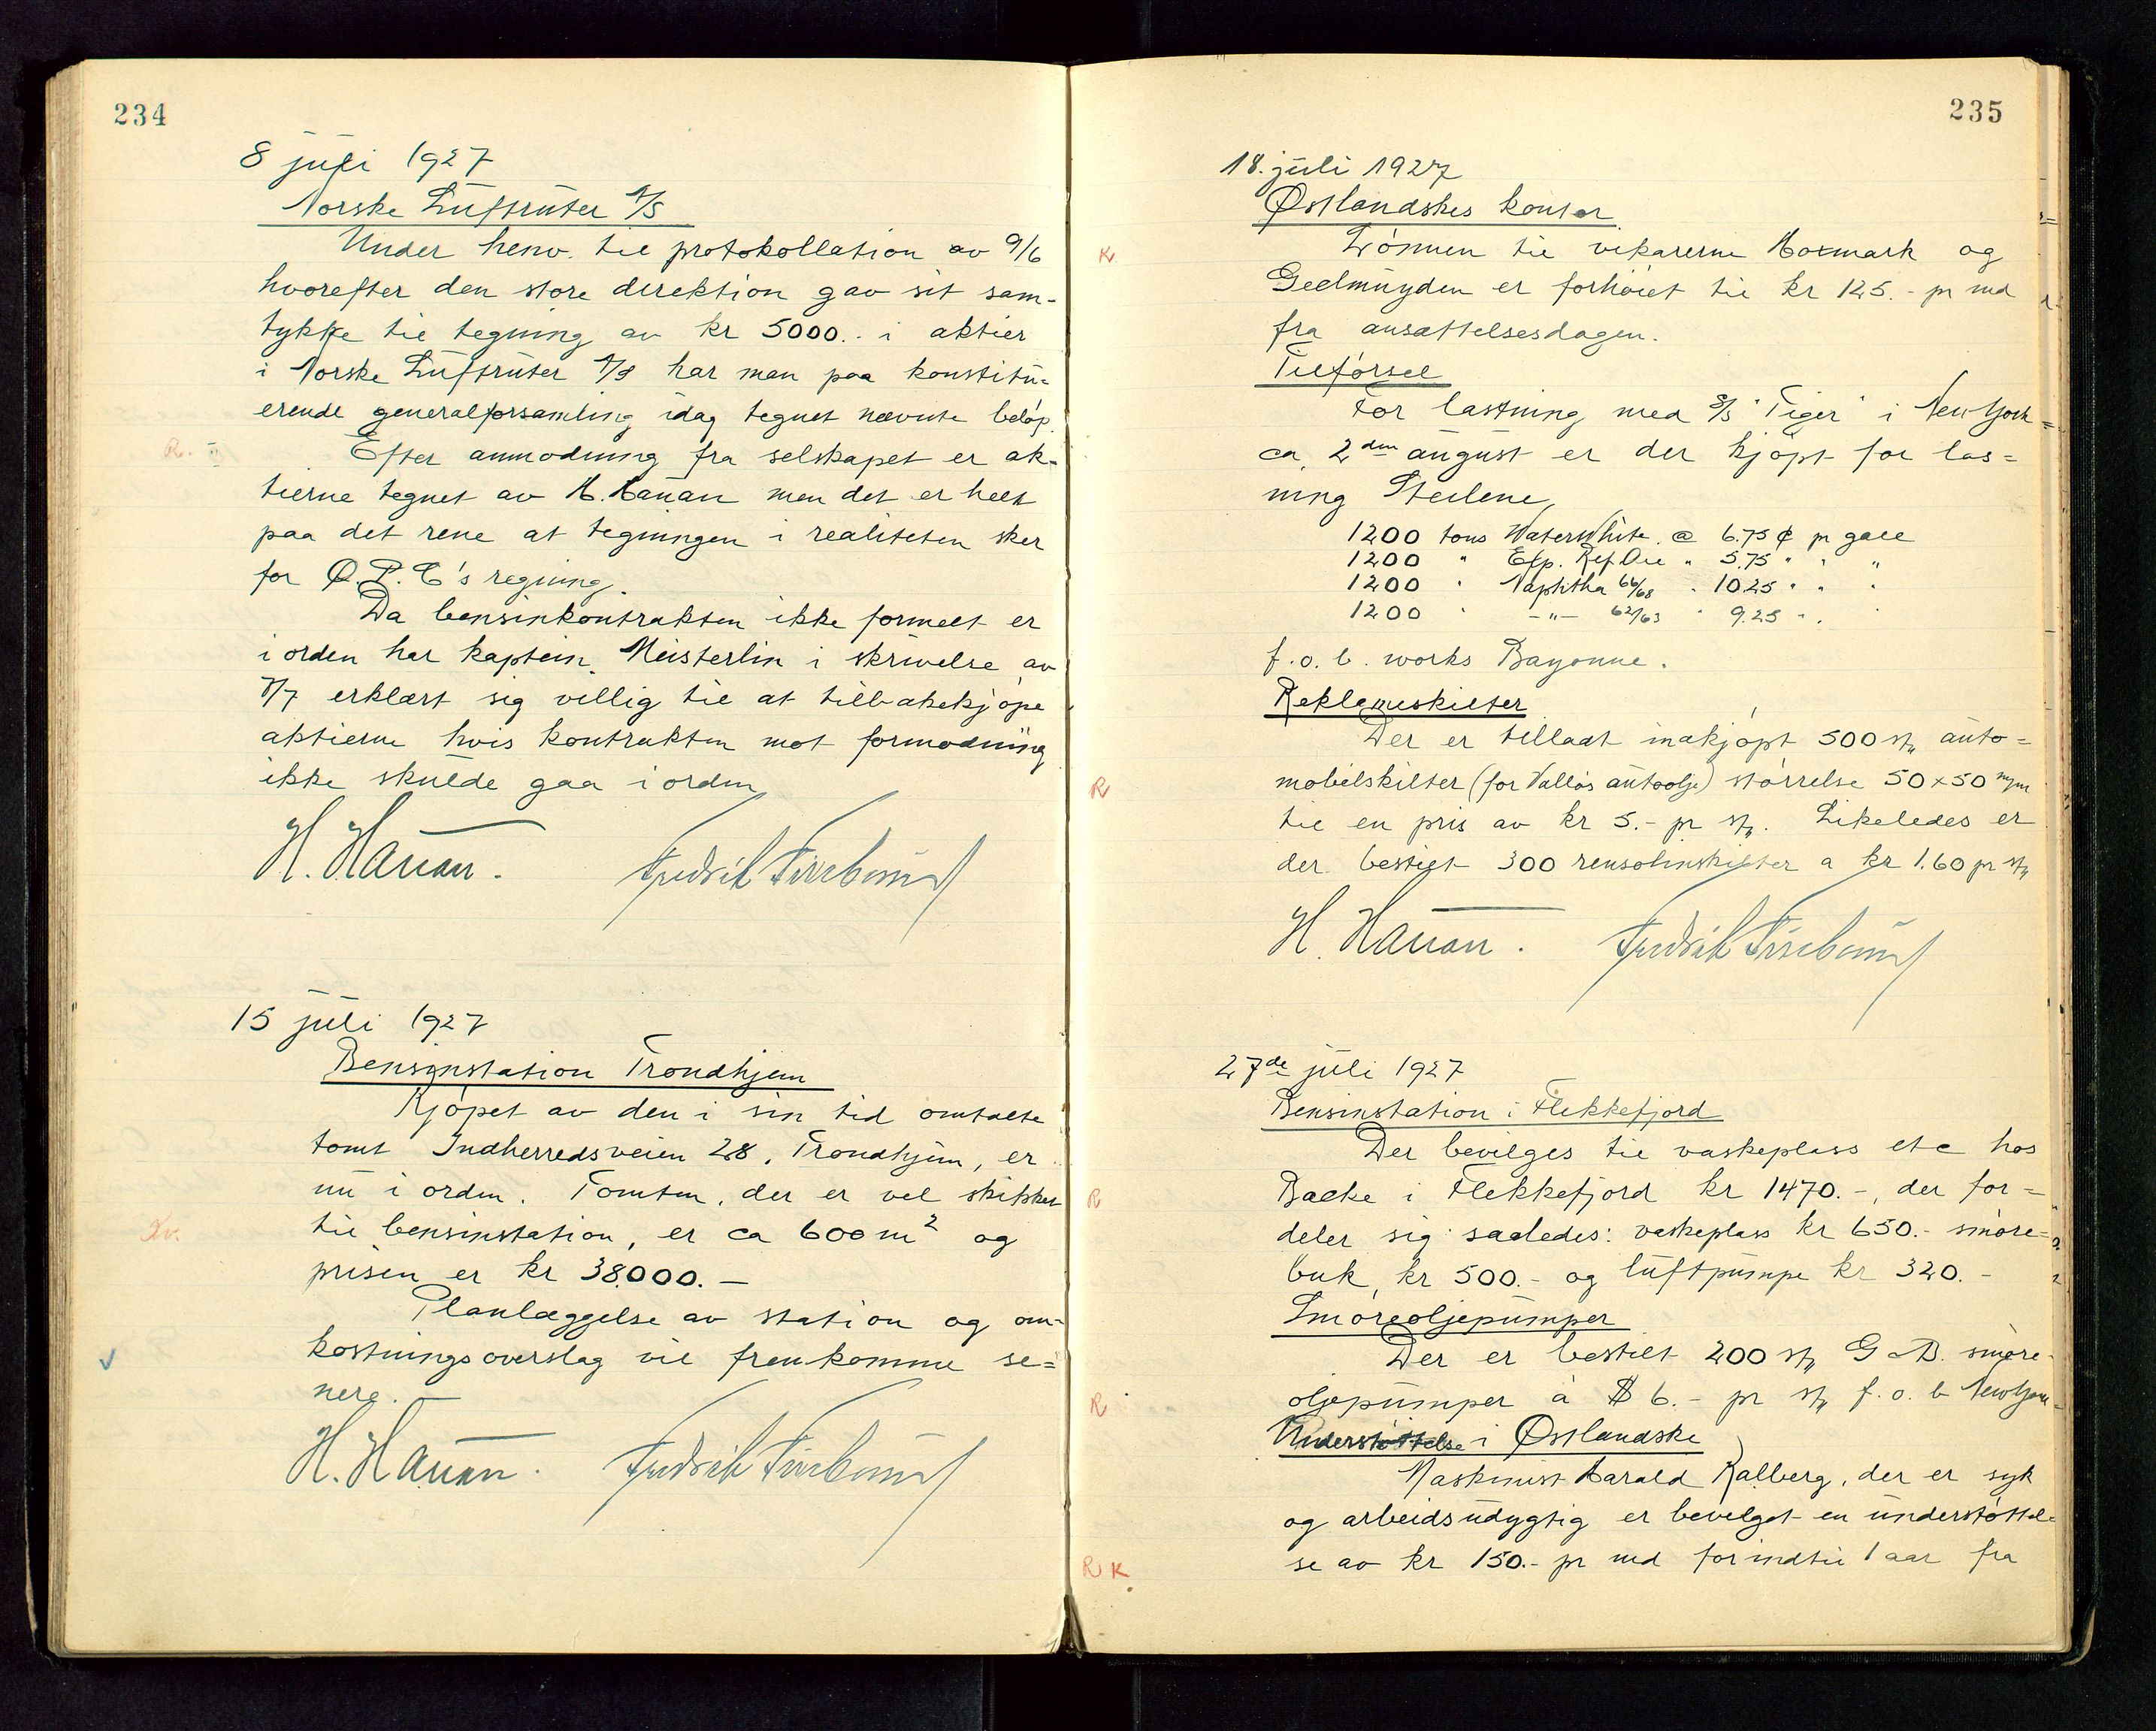 234
8 juli 1927
Norske Luftruter A/S
Under henv. til protokollation av 9/6
hvorefter den store direktion gav sit sam-
tykke til tegning av kr 5000.- i aktier
i Norske Luftruter A/S har man paa konstitu-
erende generalforsamling idag tegnet nævnte beløp.
R. II
Efter anmodning fra selskapet er ak-
tierne tegnet av H. Hauan men det er helt
paa det rene at tegningen i realiteten sker
for Ø. P. C's regning.
Da bensinkontrakten ikke formelt er
i orden har kaptein Meisterlin i skrivelse av
7/7 erklært sig villig til at tilbakekjøpe
aktierne hvis kontrakten mot formodning
ikke skulde gaa i orden
H. Hauan.
15 juli 1927
Bensinstation Trondhjem
Kjøpet av den i sin tid omtalte
tomt Indherredsveien 28, Trondhjem, er
nu i orden. Tomten, der er vel skikket
til bensinstation, er ca 600 m² og
prisen er kr 38000.-
Planlæggelse av station og om-
kostningsoverslag vil fremkomme se=
nere.
H. Hauan.
235
18. juli 1927
Østlandskes kontor
K
Lønnen til vikarerne Hoxmark og
Geelmuyden er forhøiet til kr 125.- pr md
fra ansættelsesdagen.
Tilførsel
For lastning med S/S "Tiger" i New York
ca 2den august er der kjøpt for los=
ning Steilene
1200 tons WaterWhite @ 6.75 ¢ pr gall
1200 " Exp. Ref Oil " 5.75 " " "
1200 " Naphtha 66/68 " 10.25 " " "
1200 " -"- 62/63 " 9.25 " "
f.o.b. works Bayonne.
Reklameskilter
Der er tilladt indkjøpt 500 st, auto=
R
mobilskilter (for Valløs autoolje) størrelse 50 x 50
til en pris av kr 5.- pr st. Likeledes er
der bestilt 300 rensolinskilter a kr 1.60 pr st,
H. Hauan.
27de juli 1927
Bensinstation i Flekkefjord
Der bevilges til vaskeplass etc hos
R
Backe i Flekkefjord kr 1470.-, der for=
deler sig saaledes: vaskeplass kr 650.- smøre=
buk kr 500.- og luftpumpe kr 320.-
Smøreoljepumper
Der er bestilt 200 st, G & B. smøre
R
oljepumper à $ 6.- pr st, f.o.b New York
Understøttelse i Østlandske
Maskinist Harald Kalberg, der er syk
og arbeidsudygtig er bevilget en understøttel-
R K
se av kr 150.- pr md for indtil 1 aar fra